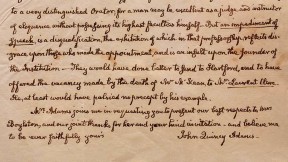 to a very distinguished Orator: for a man may be excellent as a judge and instructor
of eloquence without possessing its highest faculties himself. But an impediment of
Speech, is a disqualification, the exhibition of which in that professorship reflects dis-
grace upon those who made the appointment, and is an insult upon the founder of
the Institution — They would have done better to send to Hartford, and to have
offered the vacancy made by the death of Mr. Kean to Mr. Laurent Clerc
He, at least would have practiced no precept by his example.
Mrs. Adams joins me in requesting you to present our best respects to Mrs.
Boylston, and our joint thanks for her and your kind invitation — and believe me
to be ever faithfully yours
John Quincy Adams.